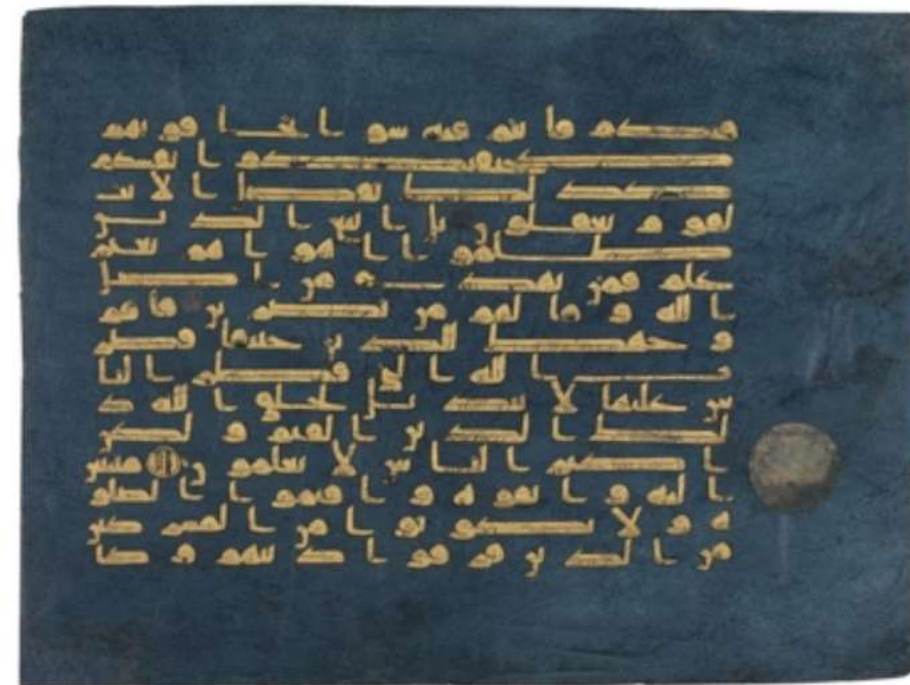 قنكم فانتم فيه سوا تخافونهم
كخيفتكم انفسكم
كذلك نفصل الايت
لقوم يعقلون بل اتبع الذين
ظلموا اهواهم بغير
علم فمن يهدي من اضل
الله وما لهم من نصرين فاقم
وجهك للدين حنيفا فطر
ت الله التي فطر النا
س عليها لا تبديل لخلق الله ذ
لك الدين القيم ولكن
اكثر الناس لا يعلمون منيبين
اليه واتقوه واقيموا الصلو
ه ولا تكونوا من المشركين
من الذين فرقوا دينهم وكا